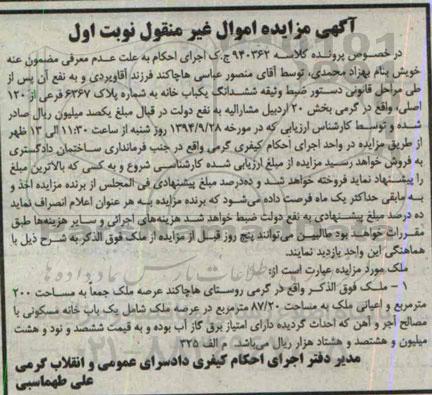 آگهی مزایده اموال غیر منقول نوبت اول
در خصوص پرونده کلاسه ۹۴۰۳۶۲ ج.ک اجرای احکام به علت عدم معرفی مضمون عنه
خویش بنام بهزاد محمدی، توسط آقای منصور عباسی هاچاکند فرزند آقاویردی و به نفع آن پس از
طی مراحل قانونی دستور ضبط وثیقه ششدانگ یکباب خانه به شماره پلاک ۶۳۶۷ فرعی از ۱۳۰
اصلی، واقع در گرمی بخش ۲۰ اردبیل مشارالیه به نفع دولت در قبال مبلغ یکصد میلیون ریال صادر
شده و توسط کارشناس ارزیابی که در مورخه ۱۳۹۴/۹/۲۸ روز شنبه از ساعت ۱۱:۳۰ الی ۱۳ ظهر
از طریق مزایده در واحد اجرای احکام کیفری گرمی واقع در جنب فرمانداری ساختمان دادگستری
به فروش خواهد رسید مزایده از مبلغ ارزیابی شده کارشناسی شروع و به کسی که بالاترین مبلغ
را پیشنهاد نماید فروخته خواهد شد و ده‌درصد مبلغ پیشنهادی فی المجلس از برنده مزایده اخذ و
به مابقی حداکثر یک ماه فرصت داده می‌شود که برنده مزایده به هر عنوان اعلام انصراف نماید
ده درصد مبلغ پیشنهادی به نفع دولت ضبط خواهد شد هزینه‌های اجرائی و سایر هزینه‌ها طبق
مقررات خواهد بود طالبین می‌توانند پنج روز قبل از مزایده از ملک فوق الذکر به شرح ذیل با
هماهنگی این واحد بازدید نمایند.
ملک مورد مزایده عبارت است از:
۱ - ملک فوق الذکر واقع در گرمی روستای هاچاکند عرصه ملک جمعاً به مساحت ۲۰۰
مترمربع و اعیانی ملک به مساحت ۸۷/۲۰ مترمربع در عرصه ملک شامل یک باب خانه مسکونی با
مصالح آجر و آهن که احداث گردیده دارای امتیاز برق گاز آب بوده و به قیمت ششصد و نود و هشت
میلیون و هشتصد و هشتاد هزار ریال می‌باشد. م الف ۳۲۵
مدیر دفتر اجرای احکام کیفری دادسرای عمومی و انقلاب گرمی
علی طهماسبی